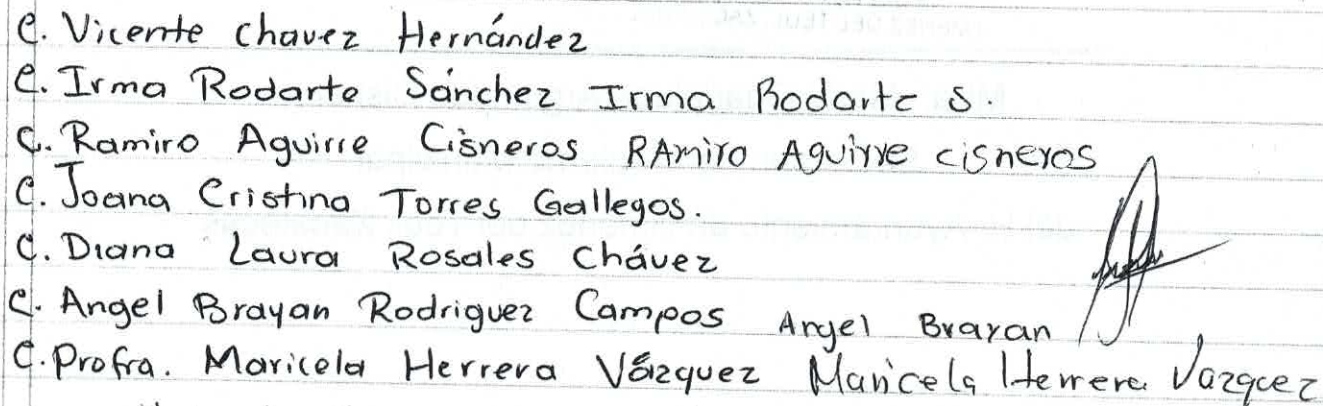 C. Vicente chavez Hernández
C. Irma Rodarte Sánchez Irma Rodarte S.
C. Ramiro Aguirre Cisneros RAmiro Aguirre cisneros
C. Joana Cristina Torres Gallegos.
C. Diana Laura Rosales Chávez
C. Angel Brayan Rodriguez Campos Angel Brayan
C. Profra. Maricela Herrera Vázquez Maricela Herrera Vazquez